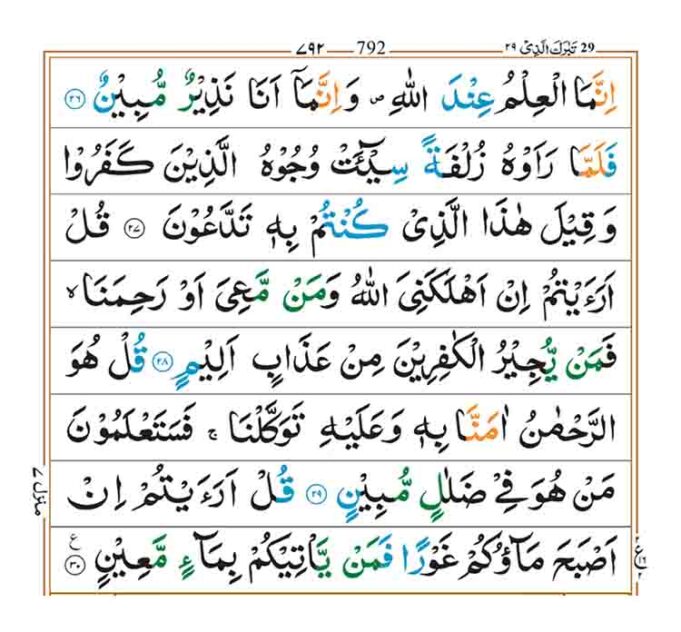 ٧٩٢ 792 ٢٩ تَبٰرَكَ الَّذِىْ 29
اِنَّمَا الْعِلْمُ عِنْدَ اللّٰهِ ۪ وَاِنَّمَاۤ اَنَا نَذِيْرٌ مُّبِيْنٌ ۝٢٦
فَلَمَّا رَاَوْهُ زُلْفَةً سِيْٓـَٔتْ وُجُوْهُ الَّذِيْنَ كَفَرُوْا
وَقِيْلَ هٰذَا الَّذِىْ كُنْتُمْ بِهٖ تَدَّعُوْنَ ۝٢٧ قُلْ
اَرَءَيْتُمْ اِنْ اَهْلَكَنِىَ اللّٰهُ وَمَنْ مَّعِىَ اَوْ رَحِمَنَا ۙ
فَمَنْ يُّجِيْرُ الْكٰفِرِيْنَ مِنْ عَذَابٍ اَلِيْمٍ ۝٢٨ قُلْ هُوَ
الرَّحْمٰنُ اٰمَنَّا بِهٖ وَعَلَيْهِ تَوَكَّلْنَا ۚ فَسَتَعْلَمُوْنَ
مَنْ هُوَ فِىْ ضَلٰلٍ مُّبِيْنٍ ۝٢٩ قُلْ اَرَءَيْتُمْ اِنْ
اَصْبَحَ مَآؤُكُمْ غَوْرًا فَمَنْ يَّاْتِيْكُمْ بِمَآءٍ مَّعِيْنٍ ۝٣٠ ع
منزل ٧